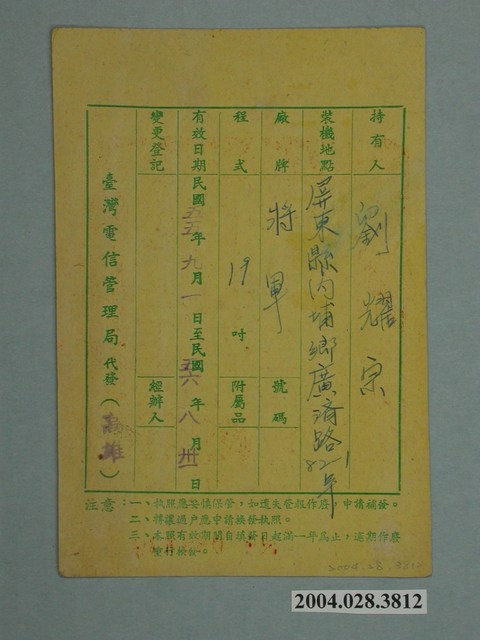 持有人 劉耀宗
裝機地點 屏東縣內埔鄉廣濟路82-1
廠牌 將軍 號碼
程式 19吋 附屬品
有效日期 民國五五年九月一日至民國五六年八月卅一日
變更登記 經辦人
臺灣電信管理局代發(高雄)
注意：一、執照應妥慎保管，如遺失登報作廢，申請補發。
二、轉讓過戶應申請換發執照。
三、本照有效期間自填發日起滿一年為止，逾期作廢
重行換發。
2004.28.3812
2004.028.3812